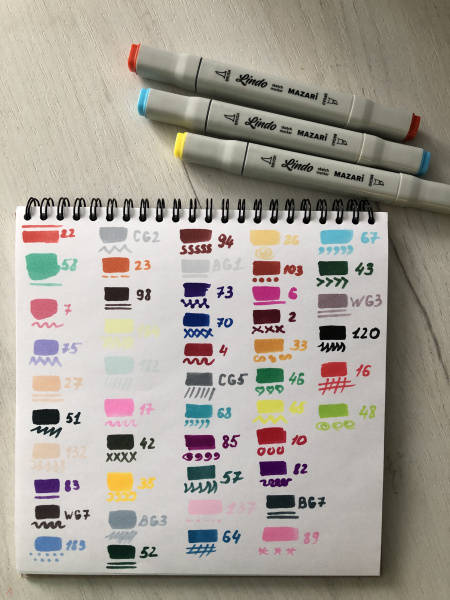 Lindo sketch marker MAZARI
Lindo sketch marker MAZARI
Lindo sketch marker MAZARI
22 CG2 94 26 67
58 23 BG1 103 43
7 98 73 6 WG3
75 70 2 120
27 4 33 16
51 17 CG5 46 48
132 42 68 45
83 35 85 10
WG7 BG3 57 82
183 52 137 BG7
64 89